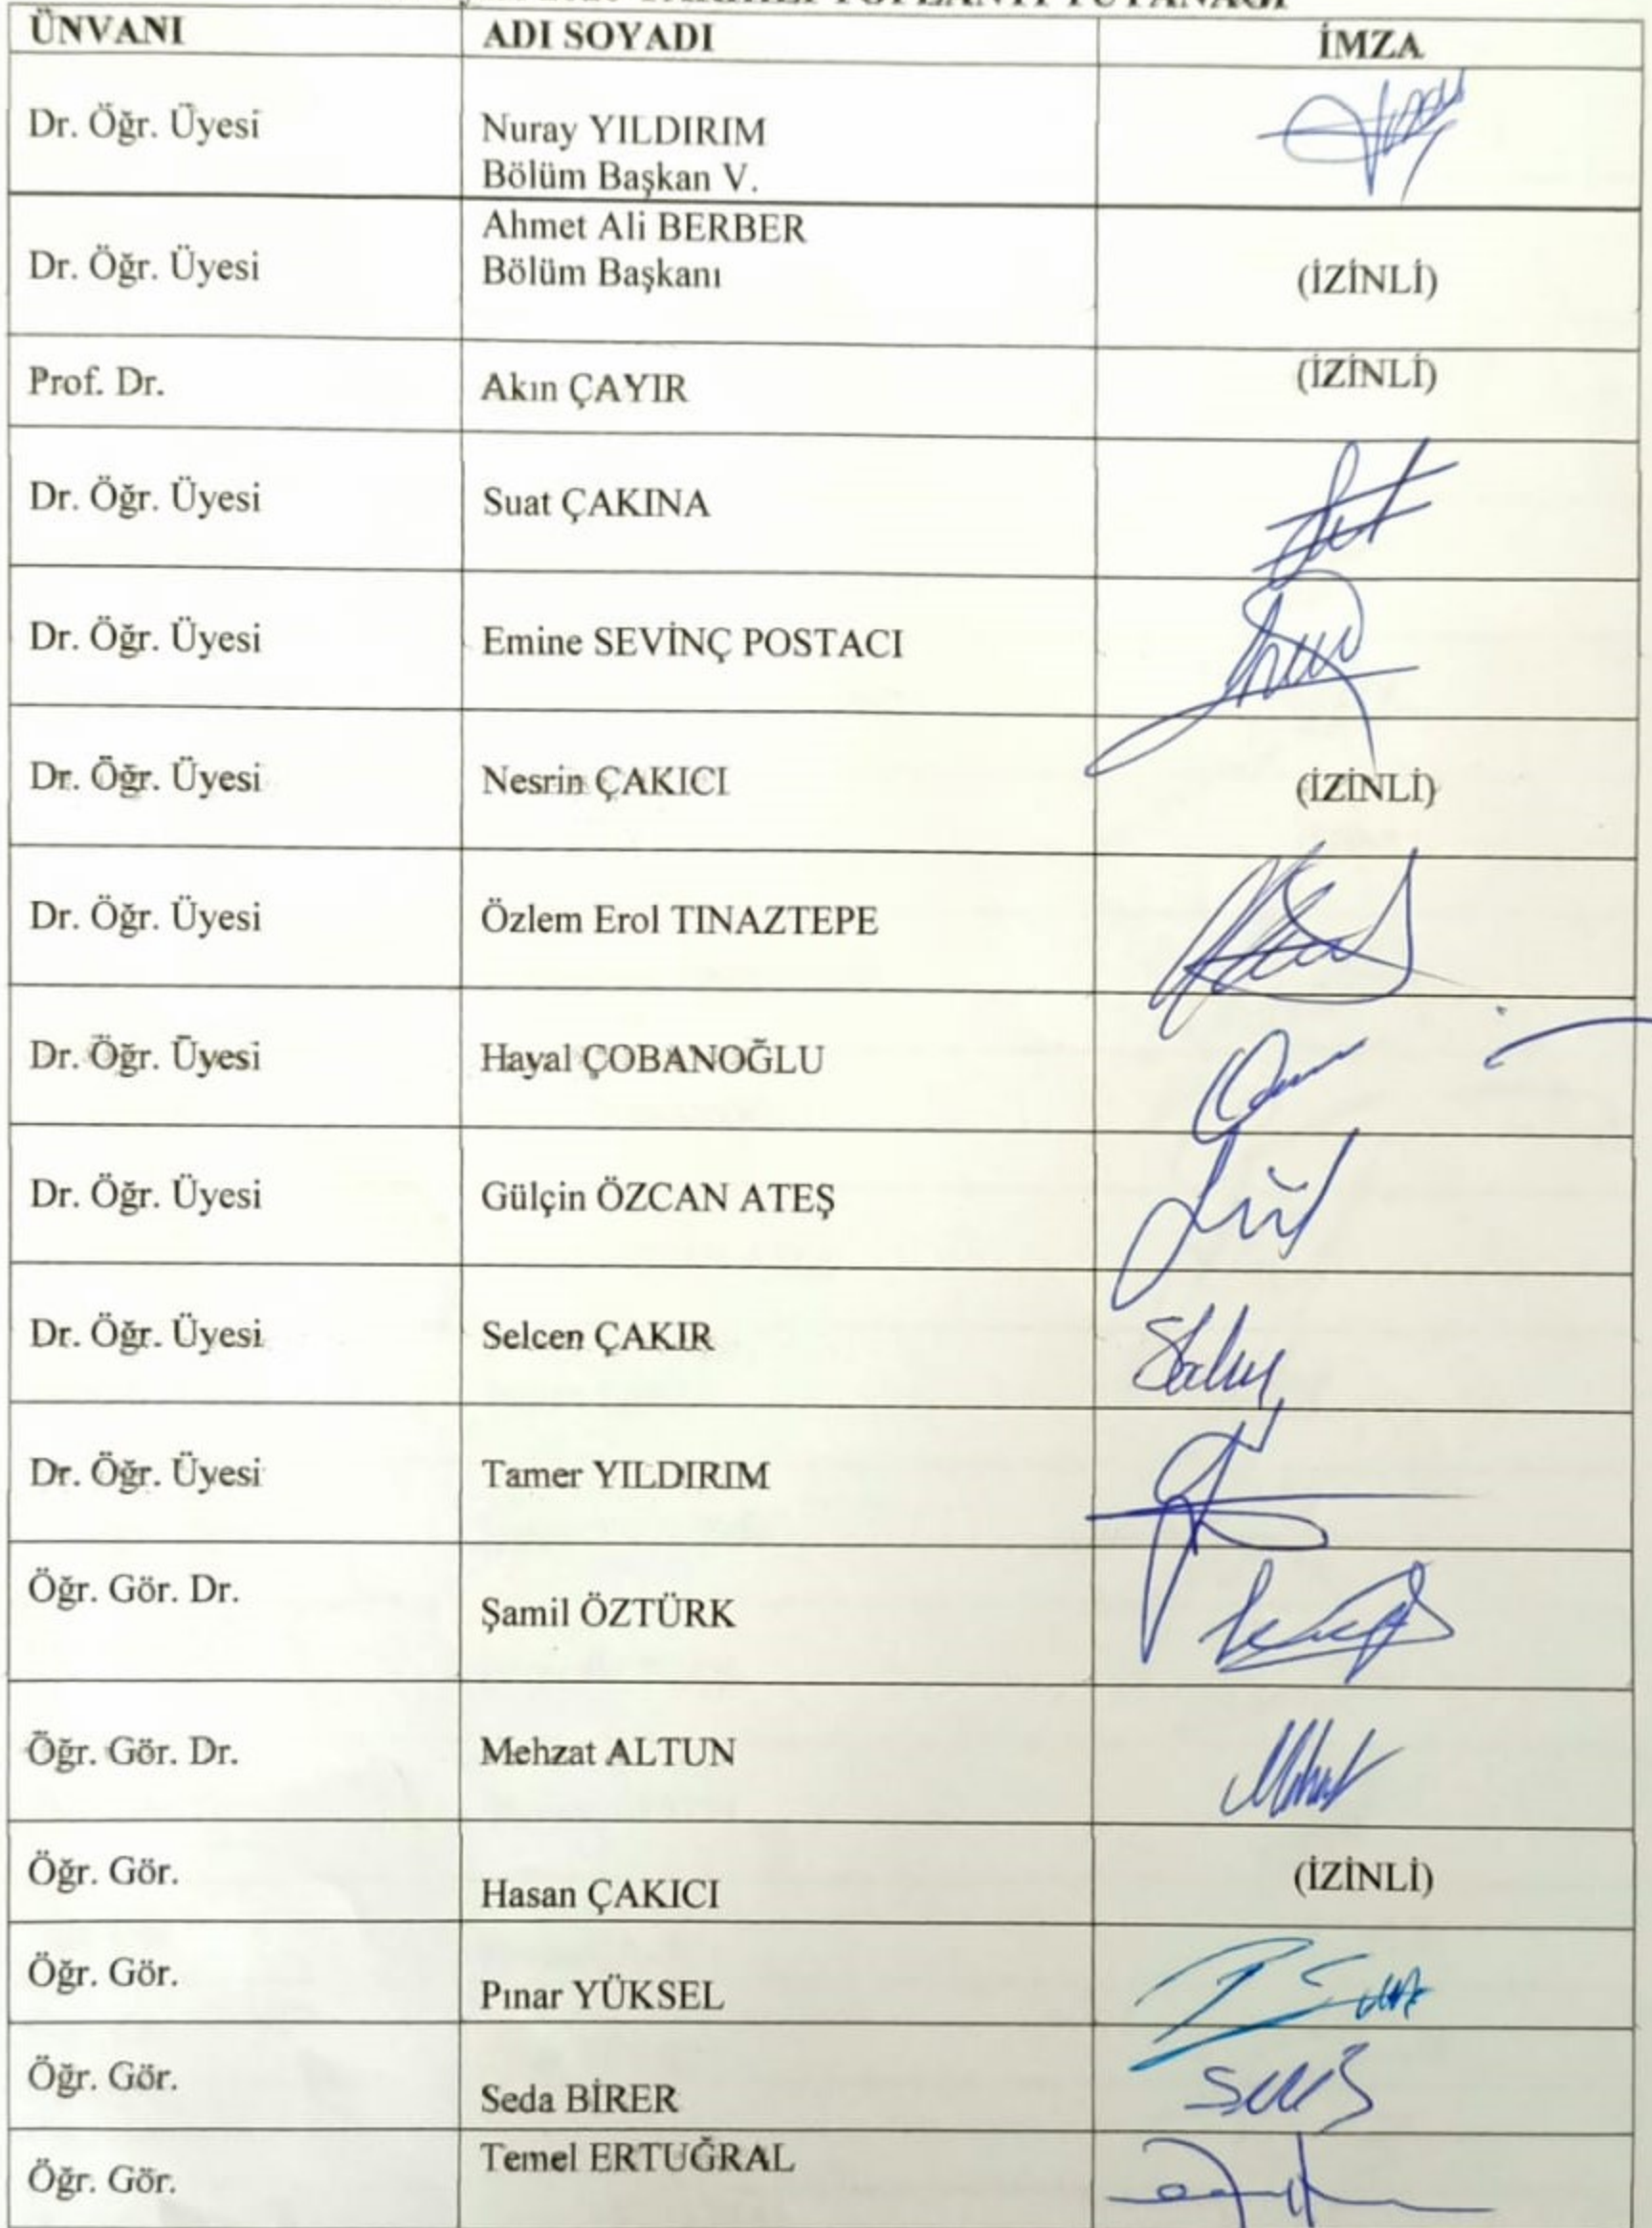 TOPLANTI TUTANAĞI
ÜNVANI ADI SOYADI İMZA
Dr. Öğr. Üyesi Nuray YILDIRIM
Bölüm Başkan V.
Dr. Öğr. Üyesi Ahmet Ali BERBER
Bölüm Başkanı (İZİNLİ)
Prof. Dr. Akın ÇAYIR (İZİNLİ)
Dr. Öğr. Üyesi Suat ÇAKINA
Dr. Öğr. Üyesi Emine SEVİNÇ POSTACI
Dr. Öğr. Üyesi Nesrin ÇAKICI (İZİNLİ)
Dr. Öğr. Üyesi Özlem Erol TINAZTEPE
Dr. Öğr. Üyesi Hayal ÇOBANOĞLU
Dr. Öğr. Üyesi Gülçin ÖZCAN ATEŞ
Dr. Öğr. Üyesi Selcen ÇAKIR
Dr. Öğr. Üyesi Tamer YILDIRIM
Öğr. Gör. Dr. Şamil ÖZTÜRK
Öğr. Gör. Dr. Mehzat ALTUN
Öğr. Gör. Hasan ÇAKICI (İZİNLİ)
Öğr. Gör. Pınar YÜKSEL
Öğr. Gör. Seda BİRER
Öğr. Gör. Temel ERTUĞRAL